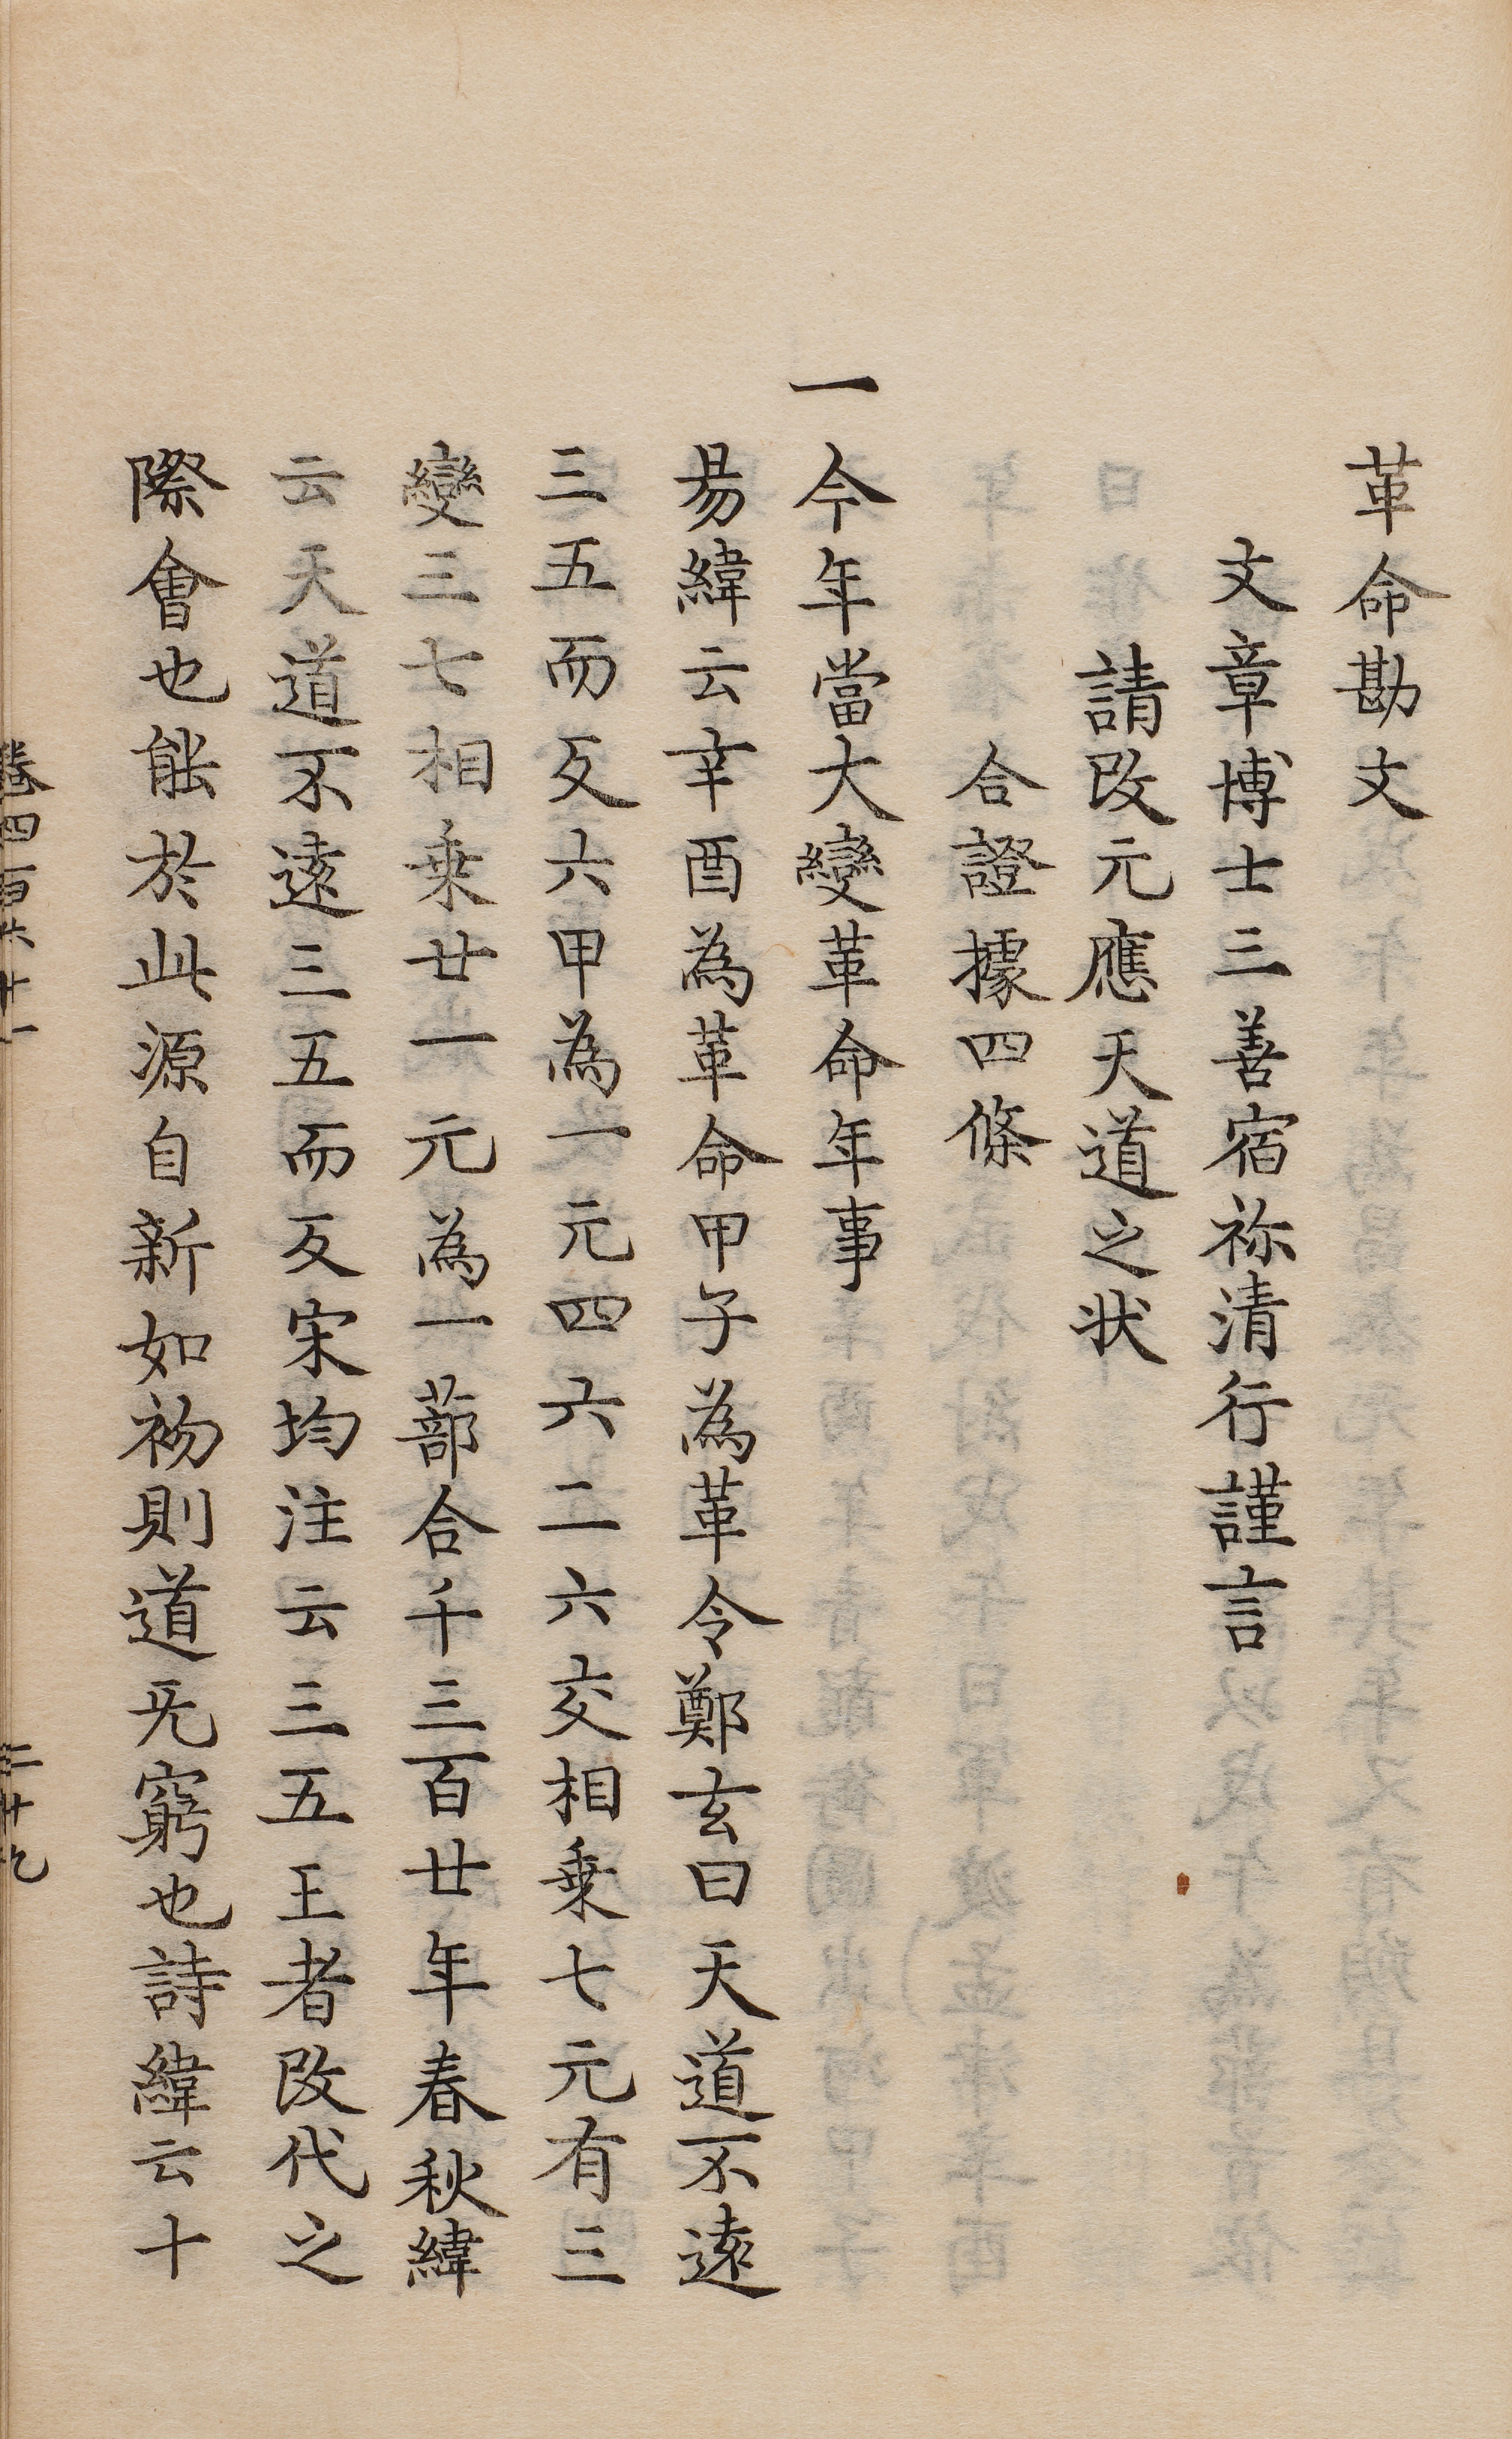 革命勘文
文章博士三善宿祢清行謹言
請改元應天道之状
合證據四條
一今年當大變革命年事
易緯云辛酉為革命甲子為革令鄭玄曰天道不遠
三五而反六甲為一元四六二六交相乗七元有三
變三七相乗廿一元為一蔀合千三百廿年春秋緯
云天道不遠三五而反宋均注云三五王者改代之
際會也能於此源自新如初則道无窮也詩緯云十
卷四百六十一
二十九